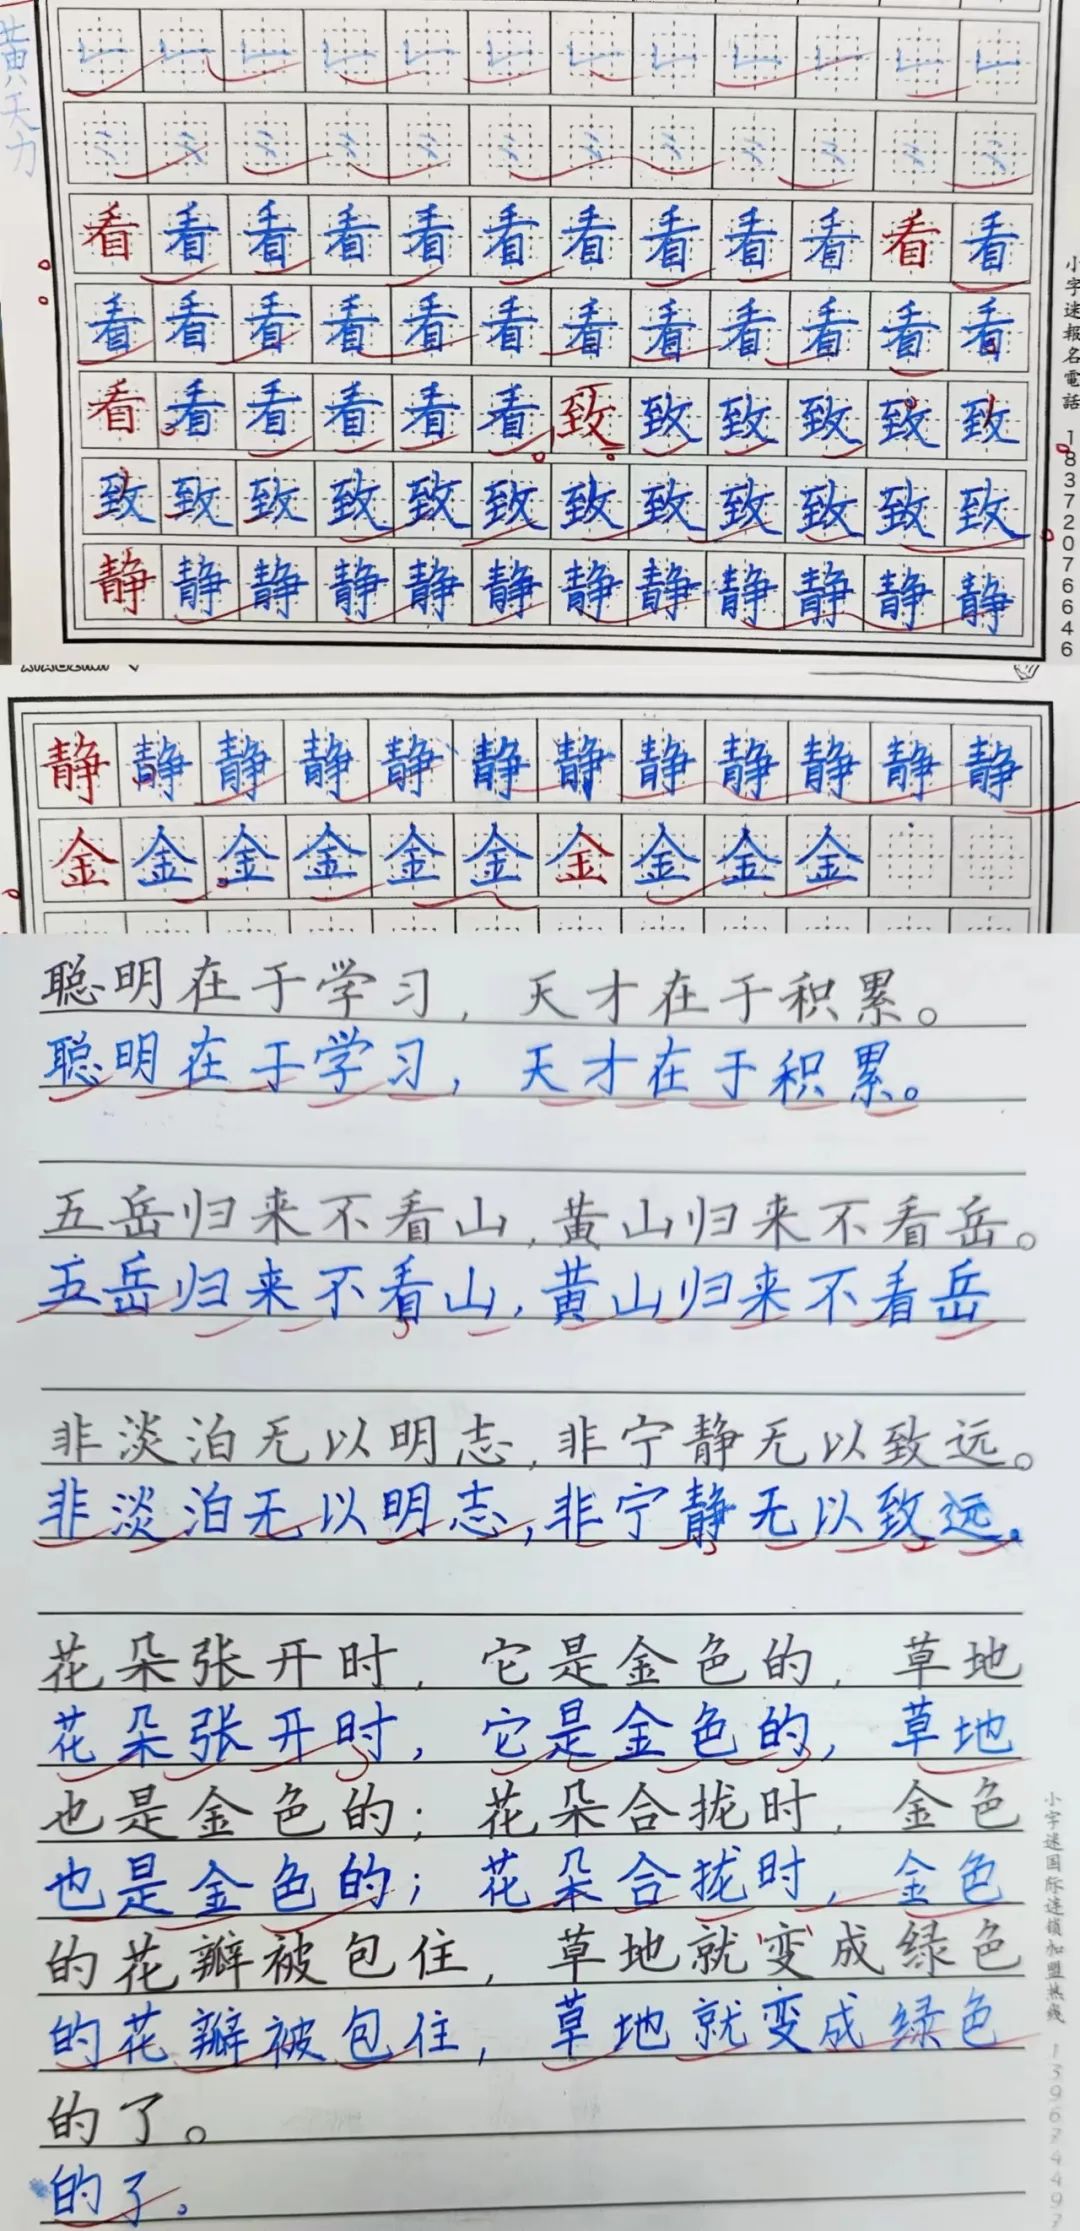 黄天力
看看看看看看看看看看看看
看看看看看看看看看看看看
看看看看看看致致致致致致
致致致致致致致致致致致致
静静静静静静静静静静静静
小字迷報名電話 18372076646
静静静静静静静静静静静静
金金金金金金金金金金
聪明在于学习，天才在于积累。
聪明在于学习，天才在于积累。
五岳归来不看山，黄山归来不看岳。
五岳归来不看山，黄山归来不看岳
非淡泊无以明志，非宁静无以致远。
非淡泊无以明志，非宁静无以致远。
花朵张开时，它是金色的，草地
花朵张开时，它是金色的，草地
也是金色的；花朵合拢时，金色
也是金色的；花朵合拢时，金色
的花瓣被包住，草地就变成绿色
的花瓣被包住，草地就变成绿色
的了。
的了。
小字迷国际连锁加盟热线